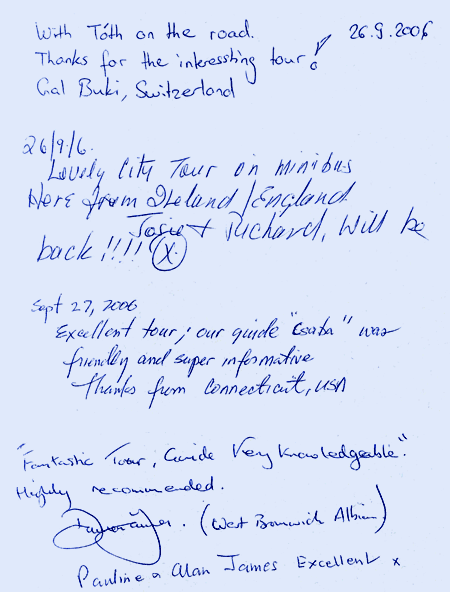 With Tóth on the road. 26.9.2006
Thanks for the interessting tour!
Gal Buki, Switzerland
26/9/6.
Lovely City Tour on minibus
Here from Ireland/England
Josie + Richard, Will be
back!!!! (X)
Sept 27, 2006
Excellent tour; our guide "Csaba" was
friendly and super informative
Thanks from Connecticut, USA
"Fantastic Tour, Guide Very Knowledgeable."
Highly recommended.
(West Bromwich Albion)
Pauline & Alan James Excellent x